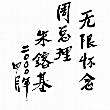 无限怀念
周总理
朱镕基
二〇〇〇年